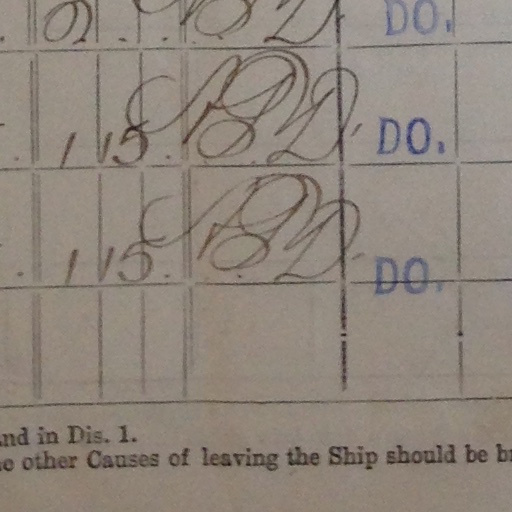 DO.
1 15. B.D. DO.
1 15. B.D. DO.
and in Dis. 1.
other Causes of leaving the Ship should be